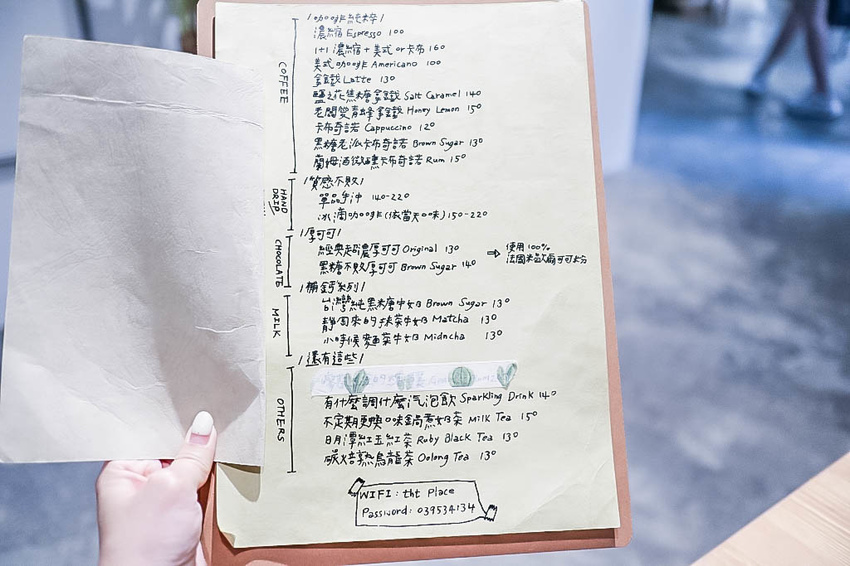 COFFEE
/咖啡純粹/
濃縮 Espresso 100
1+1 濃縮+美式 or 卡布 160
美式咖啡 Americano 100
拿鐵 Latte 130
鹽之花焦糖拿鐵 Salt Caramel 140
老闆愛青蜂拿鐵 Honey Lemon 150
卡布奇諾 Cappuccino 120
黑糖老派卡布奇諾 Brown Sugar 130
蘭姆酒微醺黑卡布奇諾 Rum 150
HAND DRIP
/質感不敗/
單品手沖 140-220
冰滴咖啡(依當天口味) 150-220
CHOCOLATE
/厚可可/
經典超濃厚可可 Original 130
黑糖不敗厚可可 Brown Sugar 140
⇨ 使用100%
法國米歇爾可可分
MILK
/補鈣系列/
台灣純黑糖牛奶 Brown Sugar 130
靜岡來的抹茶牛奶 Matcha 130
小時候麵茶牛奶 Midncha 130
OTHERS
/還有這些/
有什麼調什麼汽泡飲 Sparkling Drink 140
不定期更換口味鍋煮奶茶 Milk Tea 150
日月潭紅玉紅茶 Ruby Black Tea 130
碳焙熟烏龍茶 Oolong Tea 130
WIFI: tht Place
Password: 039534134